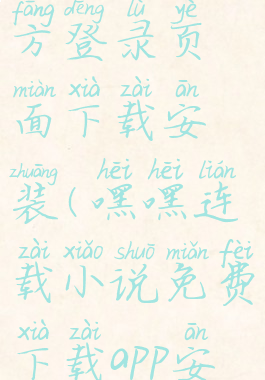 fāng dēng lù yè
方登录页
miàn xià zài ān
面下载安
zhuāng hēi hēi lián
装(嘿嘿连
zài xiǎo shuō miǎn fèi
载小说免费
xià zài ān
下载app安